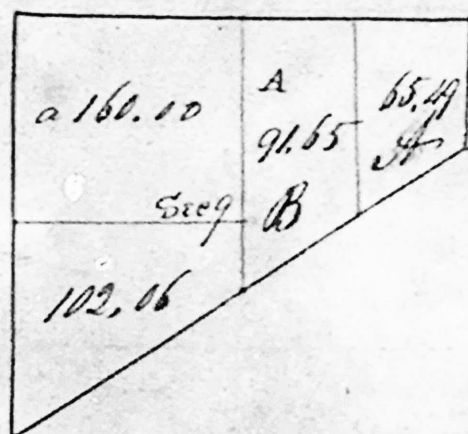 a 160.00
A
91.65
B
65.49
A
Sec 9
102.06